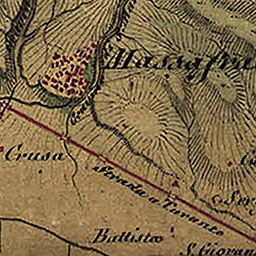 Massafra
Crusa
Strada a Taranto
Battista
S. Giovan